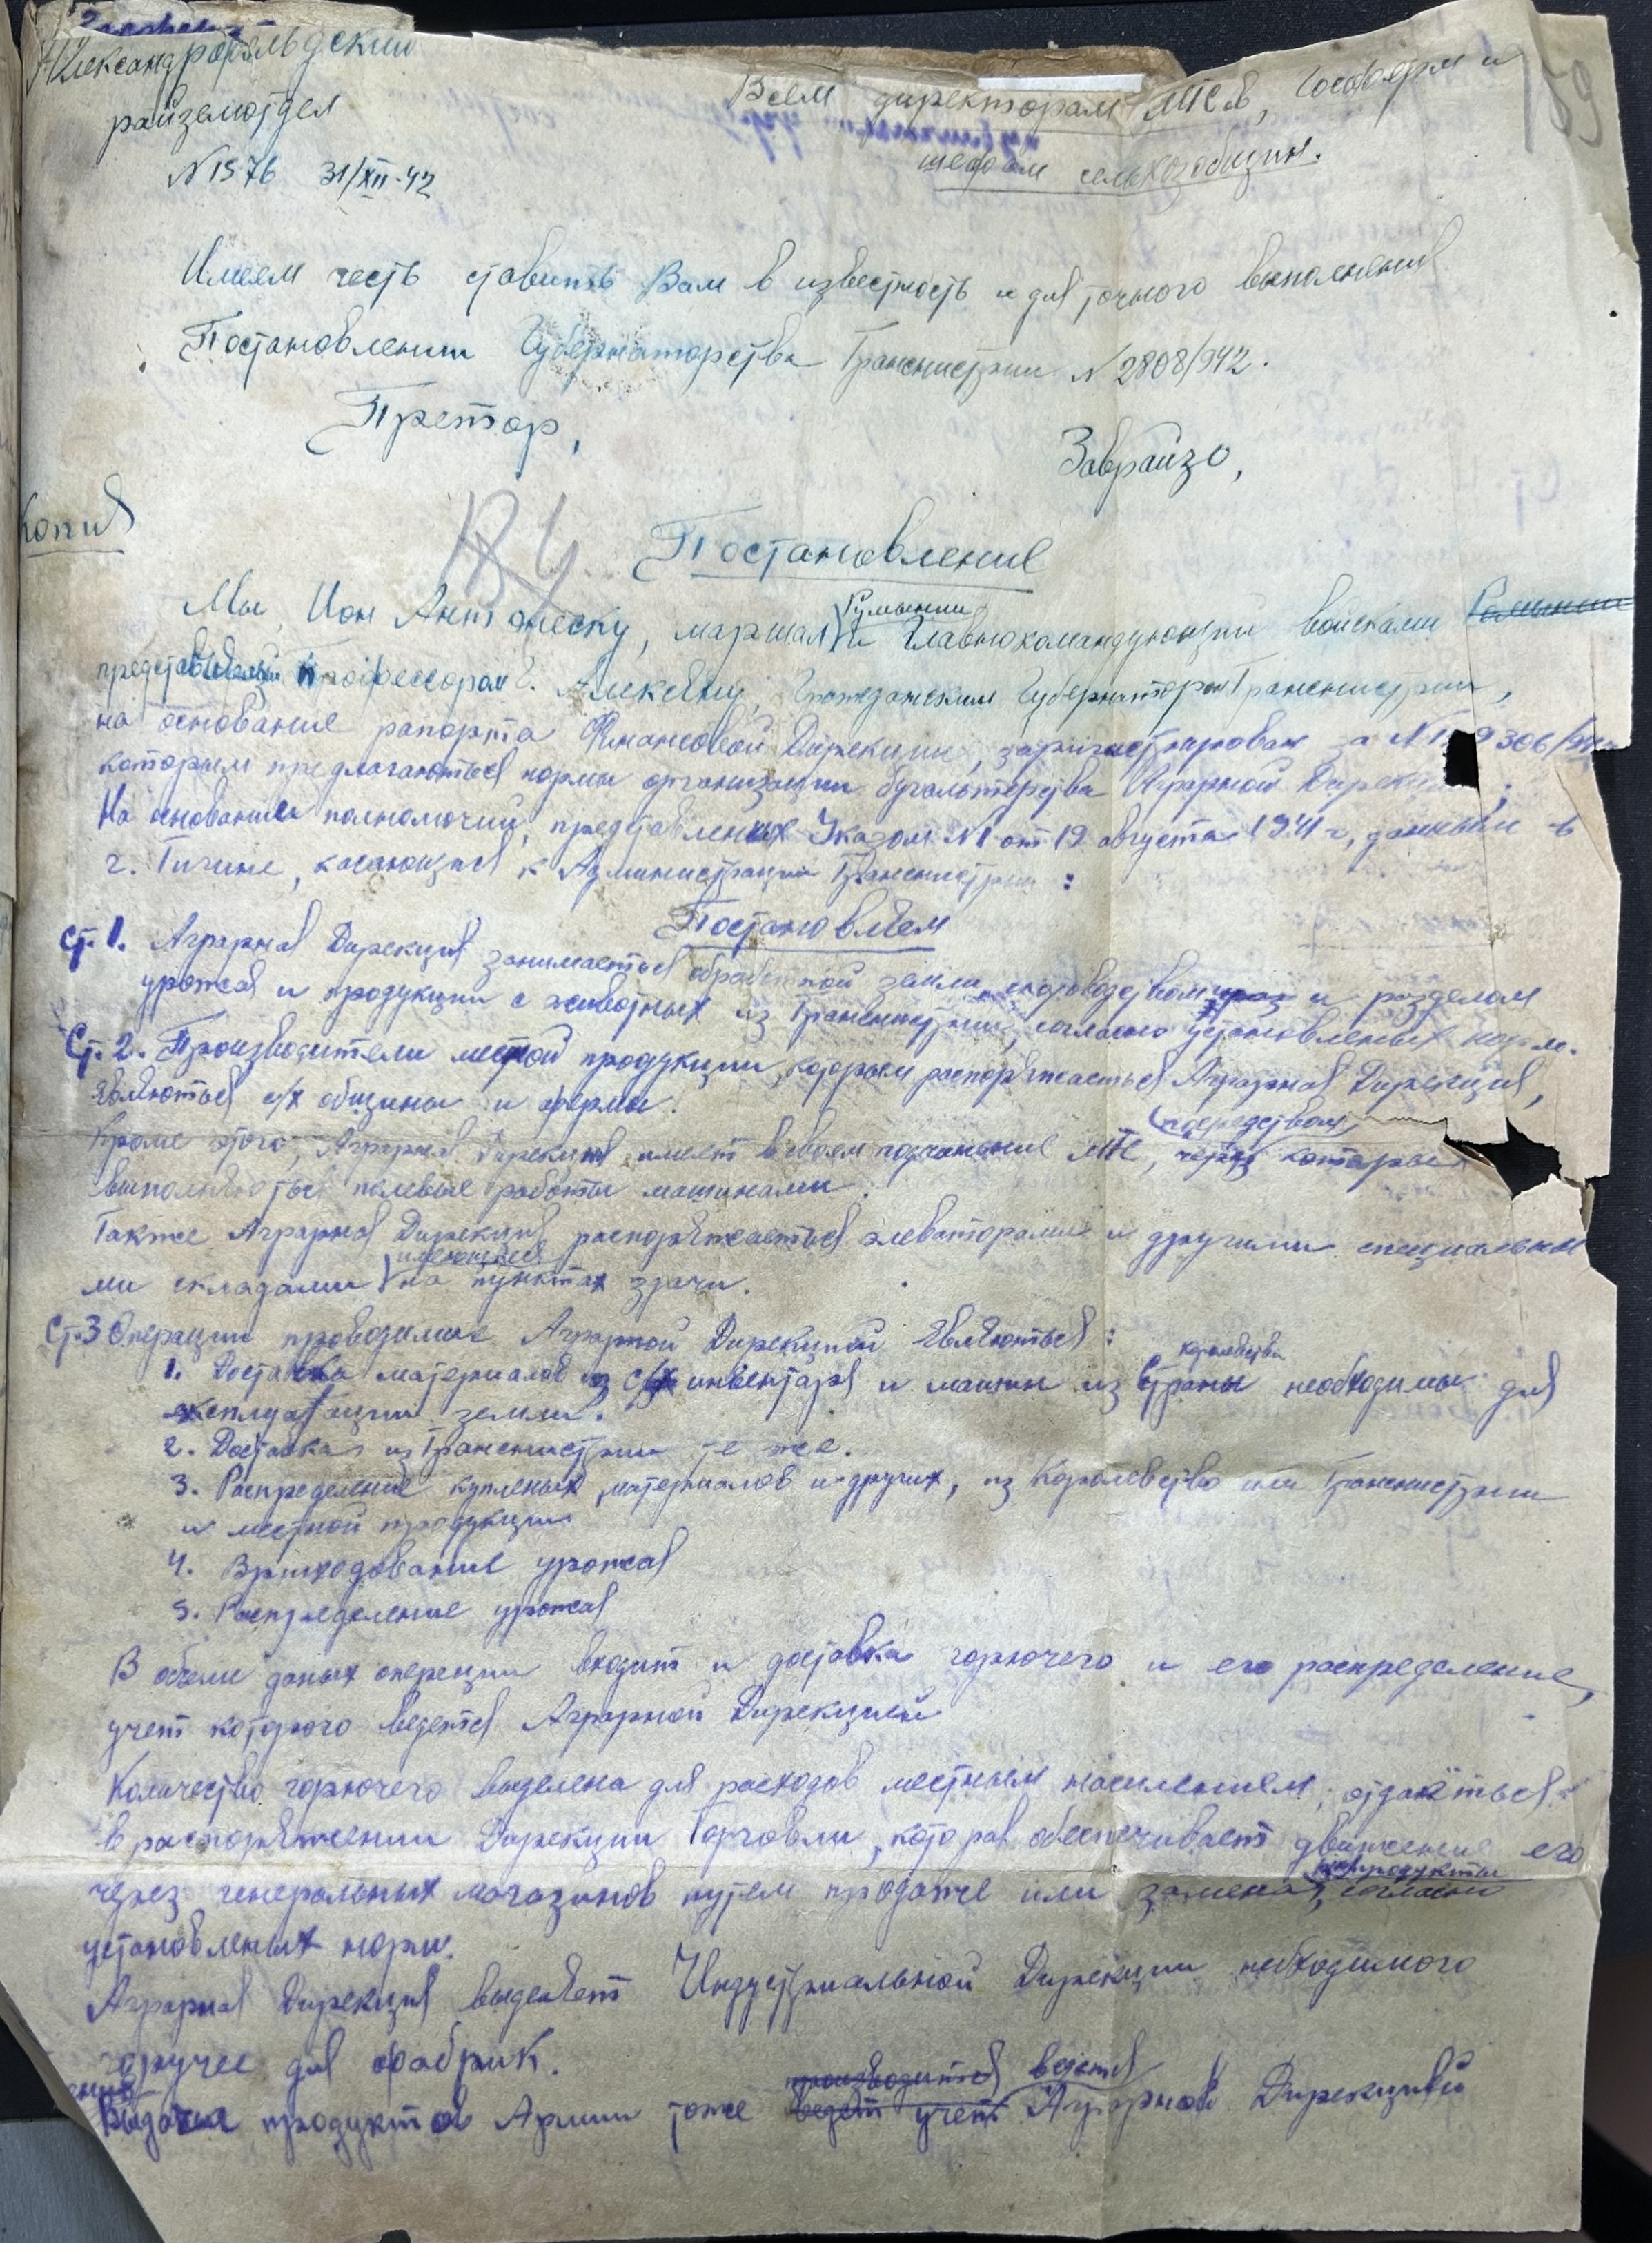 Александрфельдский
райземотдел
N 1576 31/XII-42
Всем директорам МТСов, Госферм и
шефам сельхозобщин.
189
Имеем честь ставить Вам в известность и для точного выполнения
Постановлении Губернаторства Транснистрии N 2808/942.
Претор,
Заврайзо,
Копия
Постановление
Мы, Ион Антонеску, маршал Румынии и Главнокомандующий войсками
представляемый профессором Г. Алексяну, Гражданским Губернатором Транснистрии,
на основание рапорта Финансовой Дирекции, заригистрирован за N
которым предлагаються нормы организации бугальтерства Аграрной Дирекции;
На основании полномочий, представленых Указом N1 от 19 августа 1941 г, данным в
г. Тигине, касающися к Администрации Транснистрии:
Постановляем
Ст. 1. Аграрная Дирекция занимаеться обработкой земли, скотоводством и разделом
урожая и продукции с животных из Транснистрии, согласно установленых норм.
Ст. 2. Производители местной продукции, которым распоряжаеться Аграрная Дирекция,
являються с/х общины и фермы.
Кроме этого, Аграрная Дирекция имеет в своем подчинение МТС, посредством которых
выполняються полевые работы машинами.
Также Аграрная Дирекция распоряжаеться элеваторами и другими специальны
ми складами имеющиеся на пунктах здачи.
Ст. 3 Операции проводимые Аграрной Дирекцией являються:
1. Доставка материалов из с/х инвентаря и машин из Страны королевства необходимых для
эксплуатации земли.
2. Доставка из Транснистрии те же.
3. Распределение купленых материалов и других, из Королевство или Транснистрии
и местной продукции
4. Вприходование урожая
5. Распределение урожая
В объем даных операции входит и доставка горючего и его распределение,
учет которого ведется Аграрной Дирекцией
Количество горючего выделена для расходов местным населением, отдаёться
в распоряжении Дирекции Торговли, которая обеспечивает движение его
через генеральных магазинов путем продаже или замена на продукты согласно
установленых норм.
Аграрная Дирекция выделяет Индустриальной Дирекции необходимого
горучее для фабрик.
продуктов Армии тоже производится ведется
ведет учет Аграрной Дирекцией